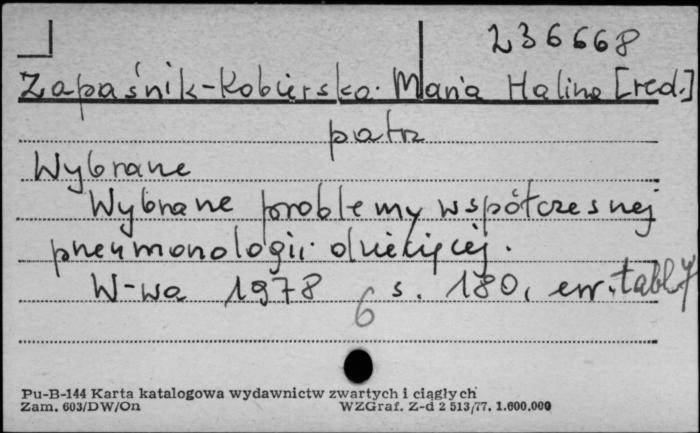 236668
Zapaśnik-Kobierska Maria Halina [red.]
patrz
Wybrane
Wybrane problemy współczesnej
pneumonologii dziecięcej.
W-wa 1978 s. 180, err. tabl. 7
6
Pu-B-144 Karta katalogowa wydawnictw zwartych i ciągłych
Zam. 603/DW/On WZGraf. Z-d 2 513/77. 1.600.000